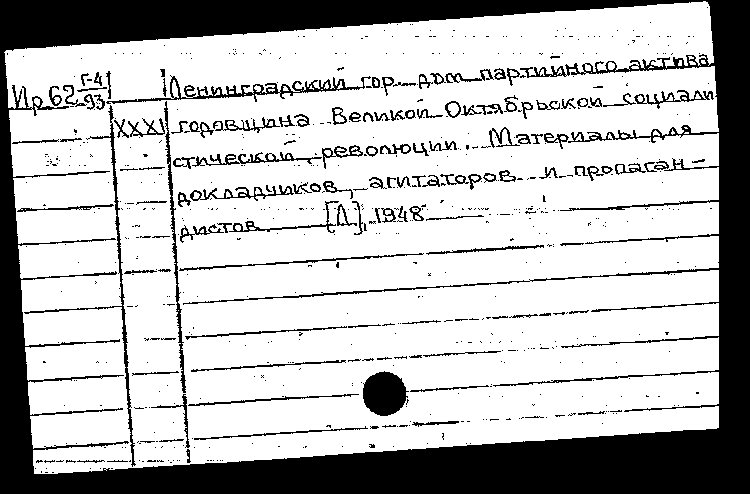 Ир62 Г-4/93 Ленинградский гор. дом партийного актива
XXXI годовщина Великой Октябрьской социали
стической революции. Материалы для
докладчиков, агитаторов и пропаган-
дистов. [Л], 1948